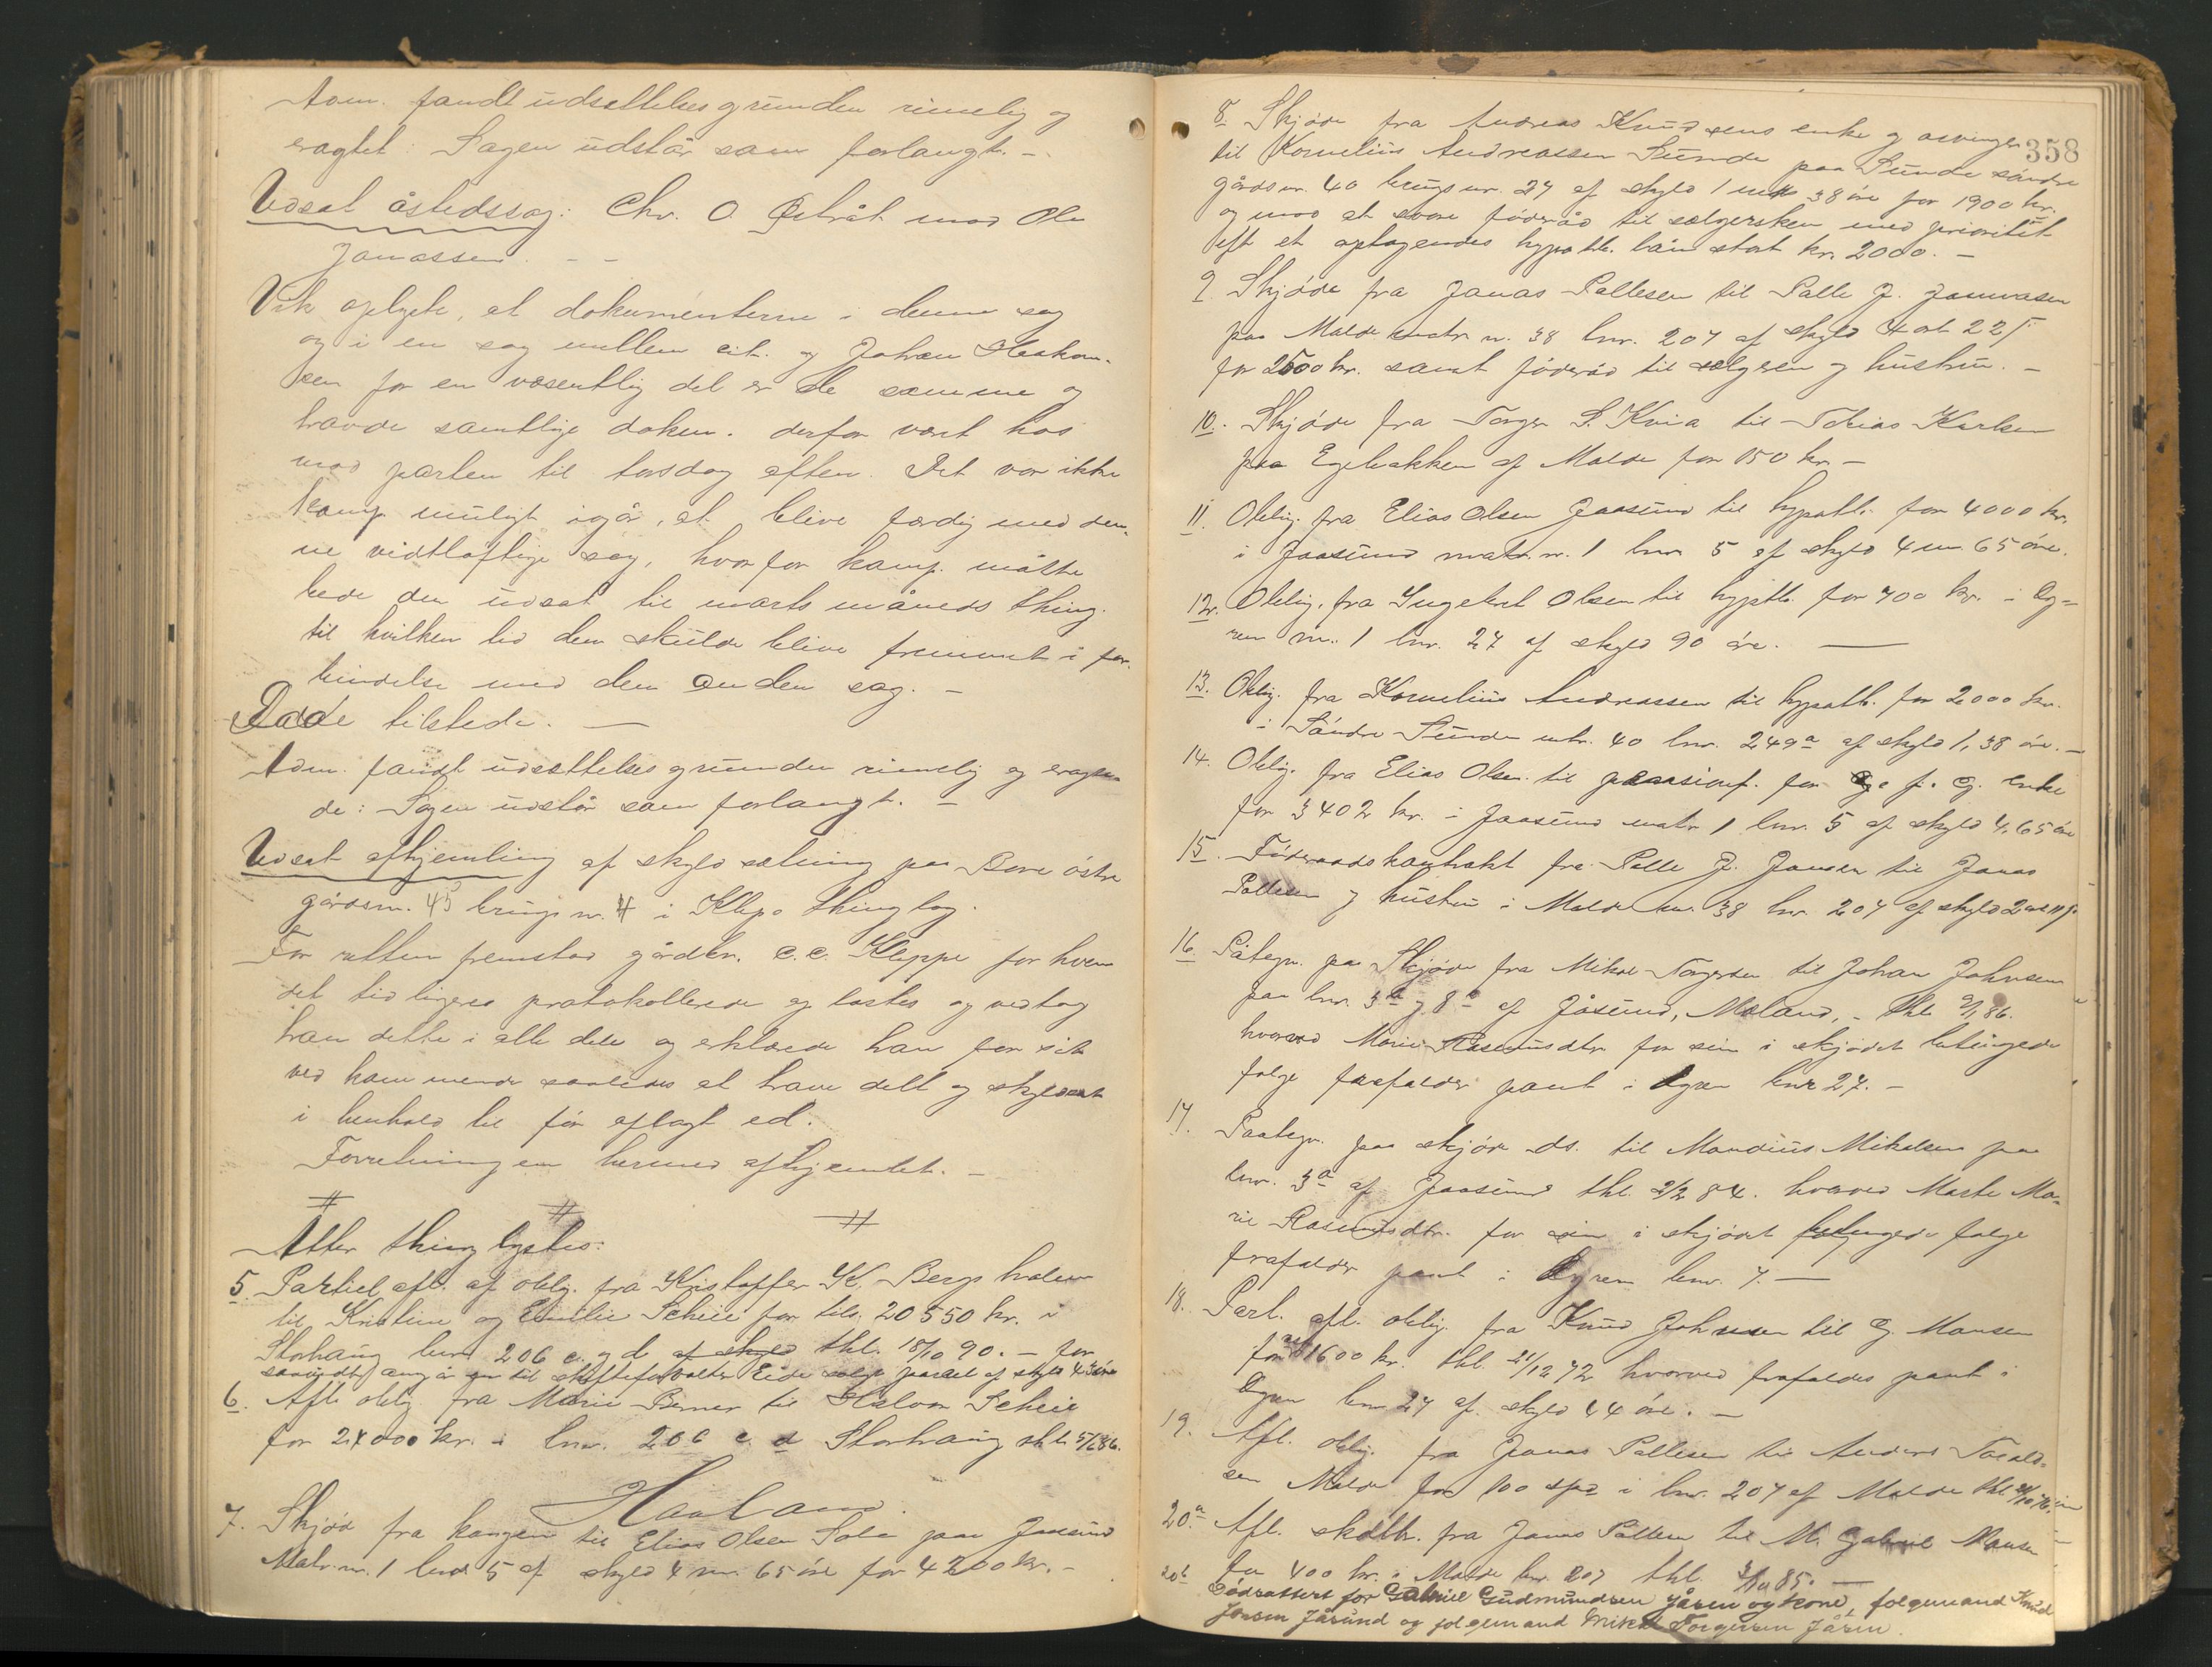 Dom. fandt udsættelsesgrunden rimelig og
eragtet: Sagen udstår som forlangt. –
Udsat åstedssag: Chr. O. Østråt mod Ole
Jonassen. – –
Vik oplyste, at dokumenterne i denne sag
og i en sag mellem cit. og Johan Haakon-
sen for en væsentlig del er de samme og
havde samtlige dokum. derfor været hos
mod parten til torsdag aften. Det var ikke
komp. muligt igår, at blive færdig med den-
ne vidtløftige sag, hvorfor komp. måtte
bede den udsat til marts måneds thing.
til hvilken tid den skulde blive fremmet i for-
bindelse med den anden sag. –
tilstede. –
Dom. fandt udsættelsesgrunden rimelig og eragte-
de: Sagen udstår som forlangt. –
Udsat afhjemling af skyldsætning paa Bore østre
gårdsnr. 45 brugsnr. 4 i Klep thinglag.
For retten fremstod gårdbr. C. C. Kleppe for hvem
det tidligere protokollerede og læstes og vedtog
han dette i alle dele og erklærede han for sit
vedkommende saaledes at have delt og skyldsat
i henhold til før aflagt ed.
Forretningen hermed afhjemlet. –
# # #
Atter thinglystes:
5. Partiel afl. af oblig. fra Kristoffer K. Bergs
til Kristine og Emilie Scheie for tils. 20550 kr. i
Storhaug bnr 206 c. og d af skyld thl. 18/10 90. – for
saavidt angår en til skifteforvalter Eide solgt parcel af skyld
6. Afl. oblig fra Marie Berner til Halvor Scheie
for 24000 kr. i lnr. 206 c. d Storhaug thl.
Haaland.
7. Skjøde fra kongen til Elias Olsen Sola paa Jaasund
Matr. nr. 1 lnr. 5 af skyld 4 m. 65 øre for 4200 kr. –
358
8. Skjøde fra Andreas Knudsens enke og arvinger
til Kornelius Andreassen Sunde paa Sunde søndre
gårdsnr. 40 brugsnr. 27 af skyld 1 mk 38 øre for 1900 kr.
og mod at svare føderåd til sælgersken med prioritet
eft et optagendes hypoth. lån stort kr. 2000. –
9. Skjøde fra Jonas Pallesen til Palle J. Jonassen
paa Molde matr. n. 38 lnr. 207 af skyld 4 ort 22 ſ
for 2500 kr. samt føderåd til sælgeren og hustru. –
10. Skjøde fra Torger S. Kvia til Tobias Karlsen
paa Egebakken af Molde for 150 kr. –
11. Oblig. fra Elias Olsen Jaasund til hypoth. for 4000 kr.
i Jaasund matr. n. 1 lnr 5 af skyld 4 m. 65 øre.
12. Oblig. fra Ingebret Olsen til hypth. for 700 kr. i Øg-
ren nr. 1 lnr. 27 af skyld 90 øre. –
13. Oblig. fra Kornelius Andreassen til hypoth. for 2000 kr.
i Søndre Sunde mtr. 40 lnr. 249a af skyld 1,38 øre. –
14. Oblig. fra Elias Olsen til for enke
for 3402 kr. i Jaasund matr 1 lnr. 5 af skyld 4,65 øre
15. Føderaadskontrakt fra Palle J. Jonsen til Jonas
Pallesen og hustru i Molde nr. 38 lnr. 207 af skyld 2
16. Påtegn. paa Skjøde fra Mikal Torgersen til Johan Johnsen
paa lnr. 3 og 8 af Jåsund, Meland, – thl. 86.
hvorved Marie Rasmusdtr. for sin i skjødet betingede
følge frafalder pant i lnr 27. –
17. Paategn. paa skjøde ds. til Mandius Mikelsen paa
lnr. 3a af Jaasund thl. 2/2 84. hvorved Marte Ma-
rie Rasmusdtr. for sin i skjødet betingede følge
frafalder pant i lnr. 7. –
18. Part. afl. oblig. fra Knud Johnsen til G. Monsen
for 1600 kr. thl. 21/12 72 hvorved frafaldes pant i
lnr 27 af skyld 44 øre. –
19. Afl. oblig. fra Jonas Pallesen til Anders
sen Molde for 100 spd i lnr. 207 af Molde thl.
20.a Afl. skdbr. fra Jonas Pallesen til M. Gabriel Monsen
for 400 kr. i Molde lnr. 207 thl. 85. –
20b Dødsattest for Gabriel Gudmundsen Jåsun og kone, følgemand Knud
Jonsen Jåsund og følgemand Mikal Torgersen Jåsun.